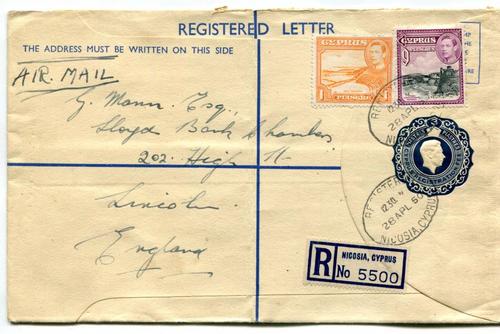 REGISTERED LETTER
THE ADDRESS MUST BE WRITTEN ON THIS SIDE
AIR MAIL
G. Mann Esq.,
Lloyds Bank Chambers
202. High St.
Lincoln.
England
CYPRUS
1 PIASTRE 1
CYPRUS
9 PIASTRES
12.30.
28 APL 50
NICOSIA
REGISTERED
12.30.
28 APL 50
NICOSIA, CYPRUS
R
NICOSIA, CYPRUS
No 5500